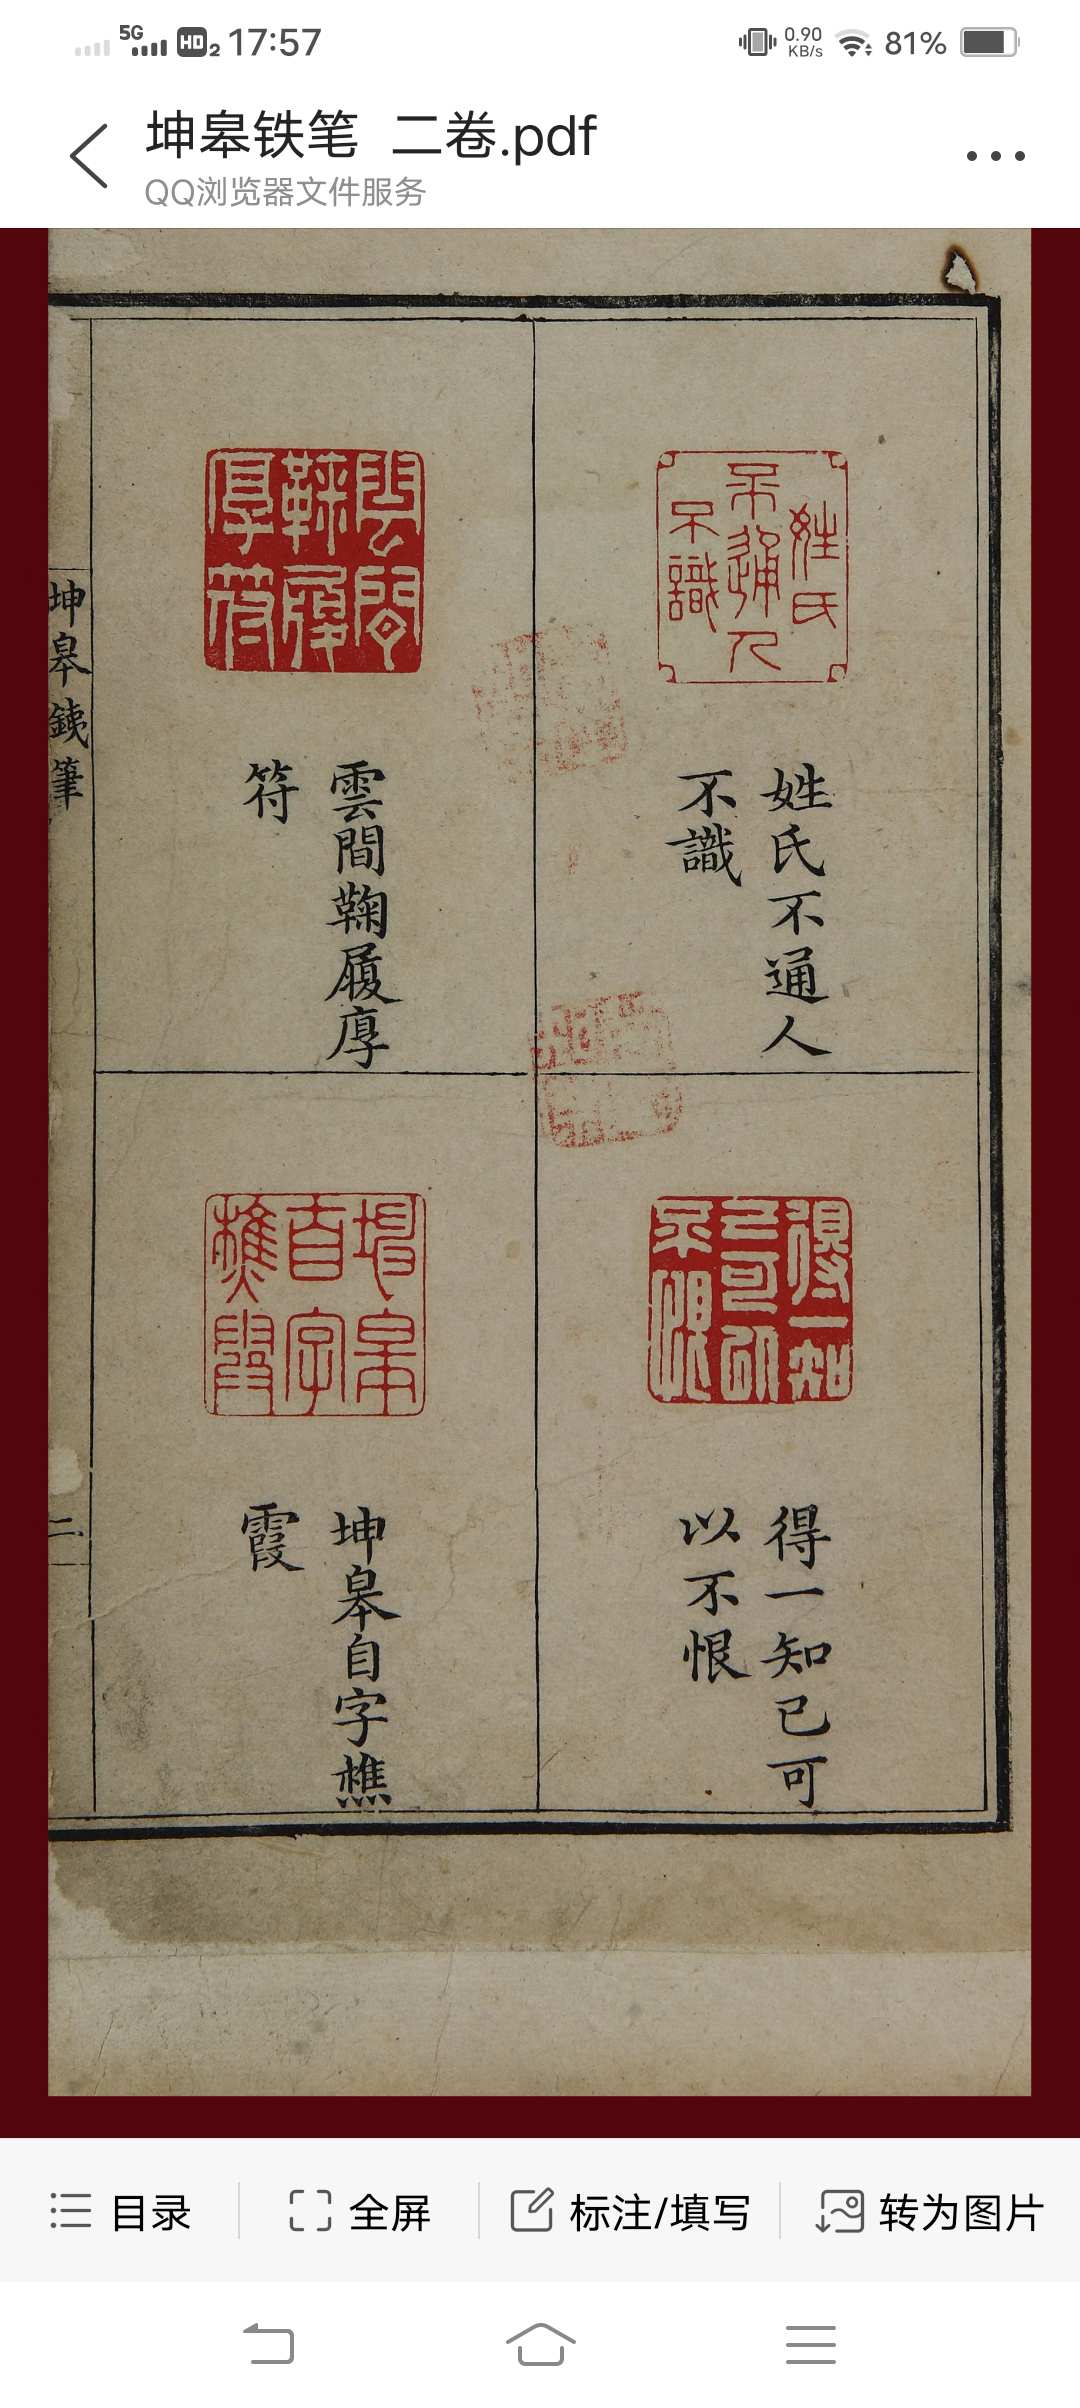 5G HD 2 17:57 0.90 KB/s 81%
坤皋铁笔 二卷.pdf
QQ浏览器文件服务
姓氏不通人
不識
得一知己可
以不恨
雲間鞠履厚
符
坤皋自字樵
霞
坤皋銕筆
二
目录 全屏 标注/填写 转为图片